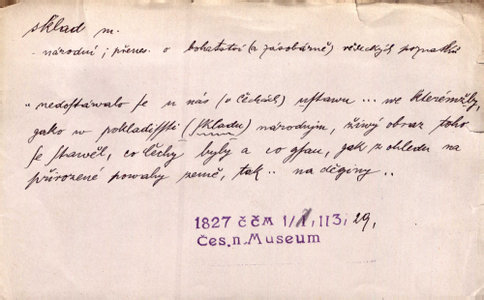 sklad m.
- národní; přenes. o bohatství (a zásobárně) vědeckých poznatků
"nedostáwalo se u nás (w Čechách) ustawu ... we kterémžby,
gako w pokladišti (skladu) národnjm, žiwý obraz toho
se stawěl, co Čechy byly a co gsau, gak z ohledu na
přirozené powahy země, tak .. na děginy ..
1827 ČČM 1/1, 113, 29,
Čes. n. Museum